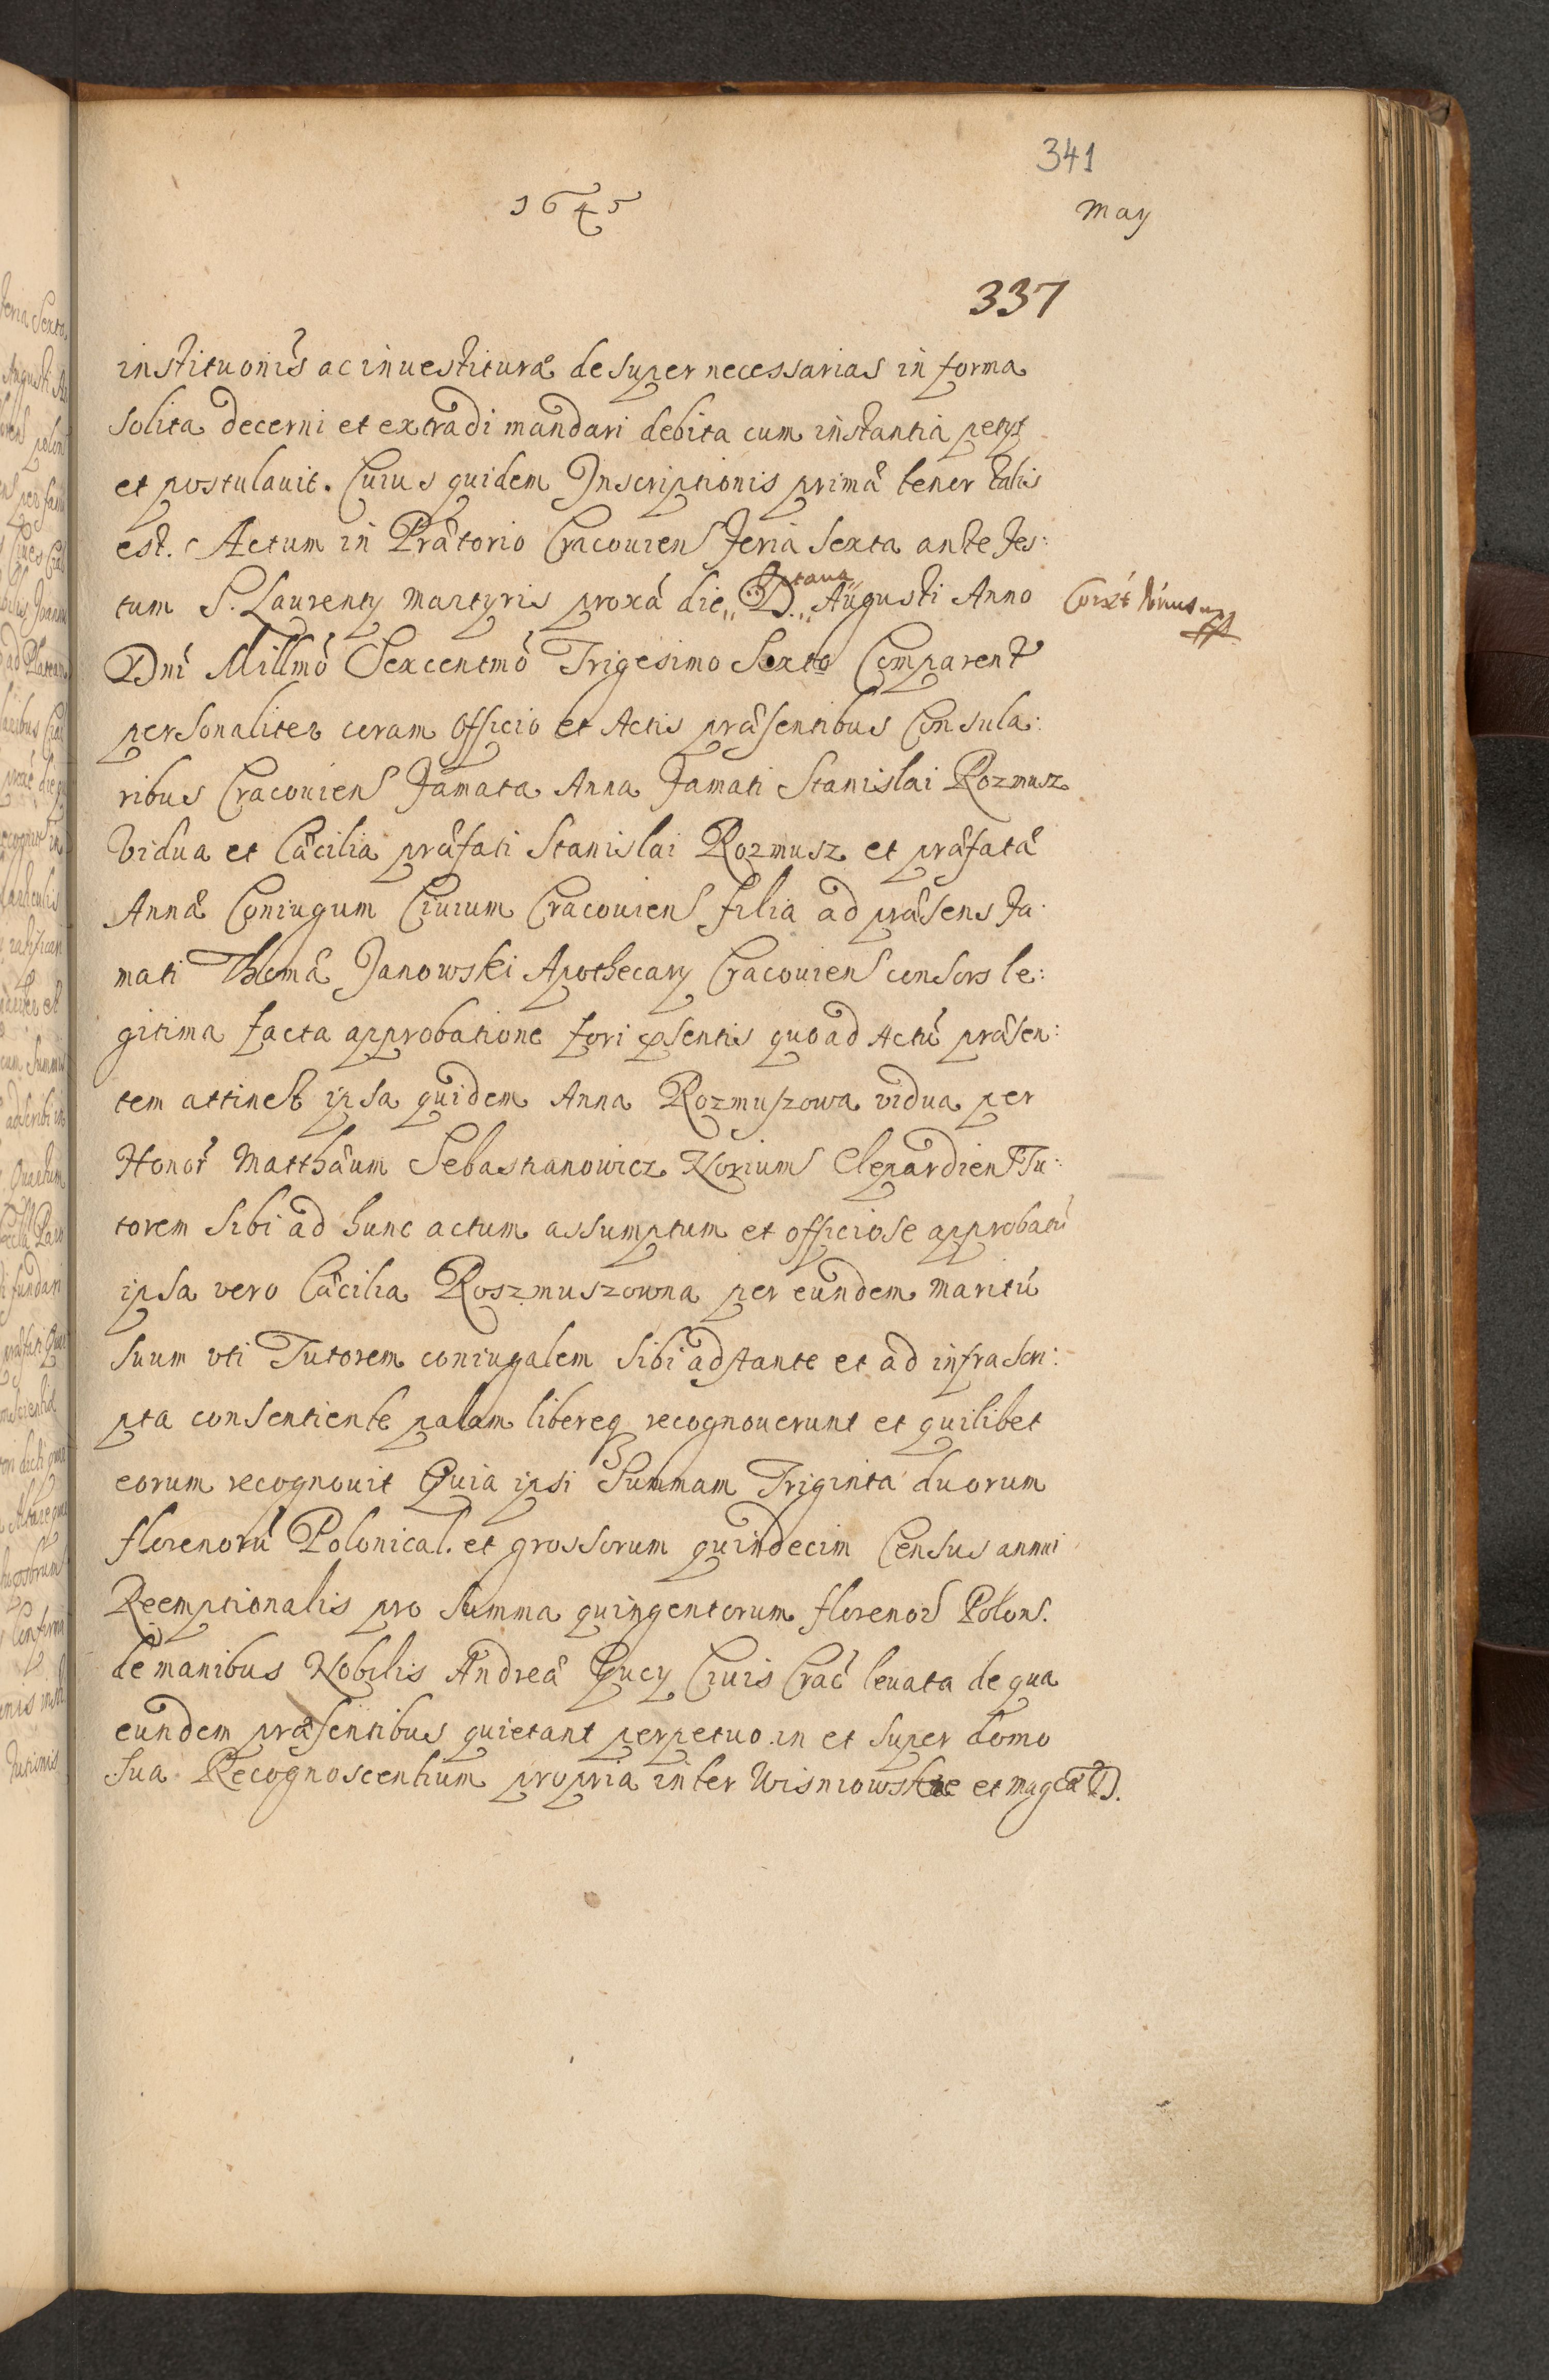 341
1645
May
337
instituonis ac inuestituræ desuper necessarias in forma
solita decerni et extradi mandari debita cum instantia petyt
et postulauit. Cuius quidem Inscriptionis primæ tenor talis
est. Actum in Prætorio Cracouien Feria Sexta ante Fes:
tum S. Laurenty Martyris proxa die octaua Augusti Anno
Dni Millmo Sexcentmo Trigesimo Sexto Comparent
personaliter coram Officio et Actis præsentibus Consula:
ribus Cracouien Famata Anna Famati Stanislai Rozmusz
Vidua et Cæcilia præfati Stanislai Rozmusz et præfatæ
Annæ Coniugum Ciuium Cracouien filia ad præsens Fa:
mati Thomæ Janowski Apothecary Cracouien consors le:
gitima facta approbatione fori psentis quoad Actu præsen:
tem attinet ipsa quidem Anna Rozmuszowa vidua per
Honor Matthæum Sebastianowicz Norium Clepardien Tu:
torem sibi ad hunc actum assumptum et officiose approbatu
ipsa vero Cæcilia Roszmuszowna per eundem maritu
suum vti Tutorem coniugalem sibi adstante et ad infrascri:
pta consentiente palam libereq recognouerunt et quilibet
eorum recognouit Quia ipsi Summam Triginta duorum
florenoru Polonical. et grossorum quindecim Census annui
Reemptionalis pro summa quingentorum floren Polon.
de manibus Nobilis Andreæ Gucy Ciuis Crac leuata de qua
eundem præsentibus quietant perpetuo in et super domo
sua Recognoscentium propria inter Wisniowskie et magcæ D.